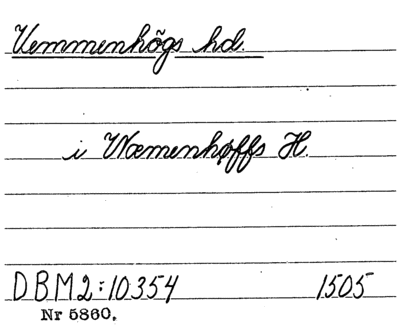 Vemmenhögs hd.
i Wæmenhøffs H.
DBM2:10354 1505
Nr 5860.